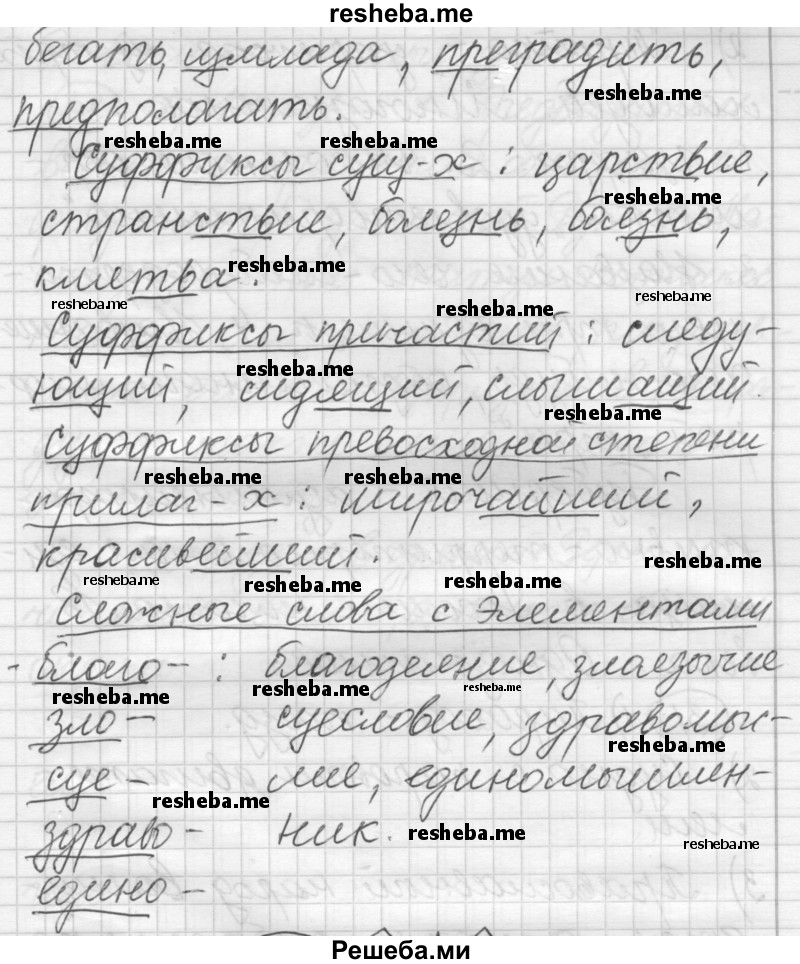 resheba.me
бегать, измлада, преградить,
resheba.me
предполагать.
resheba.me resheba.me
Суффиксы сущ-х : царствие,
resheba.me
странствие, болезнь, болезнь,
клятва. resheba.me
resheba.me resheba.me resheba.me
Суффиксы причастий : следу-
resheba.me
ющий, сидящий, слышащий.
resheba.me
Суффиксы превосходной степени
resheba.me resheba.me
прилаг-х : широчайший,
красивейший. resheba.me
resheba.me resheba.me resheba.me
Сложные слова с элементами
- благо- : благодеяние, злаезычие
resheba.me resheba.me resheba.me
зло- суесловие, здравомыс-
resheba.me
суе- лие, единомышлен-
resheba.me
здраво- ник. resheba.me resheba.me
едино-
Решеба.ми